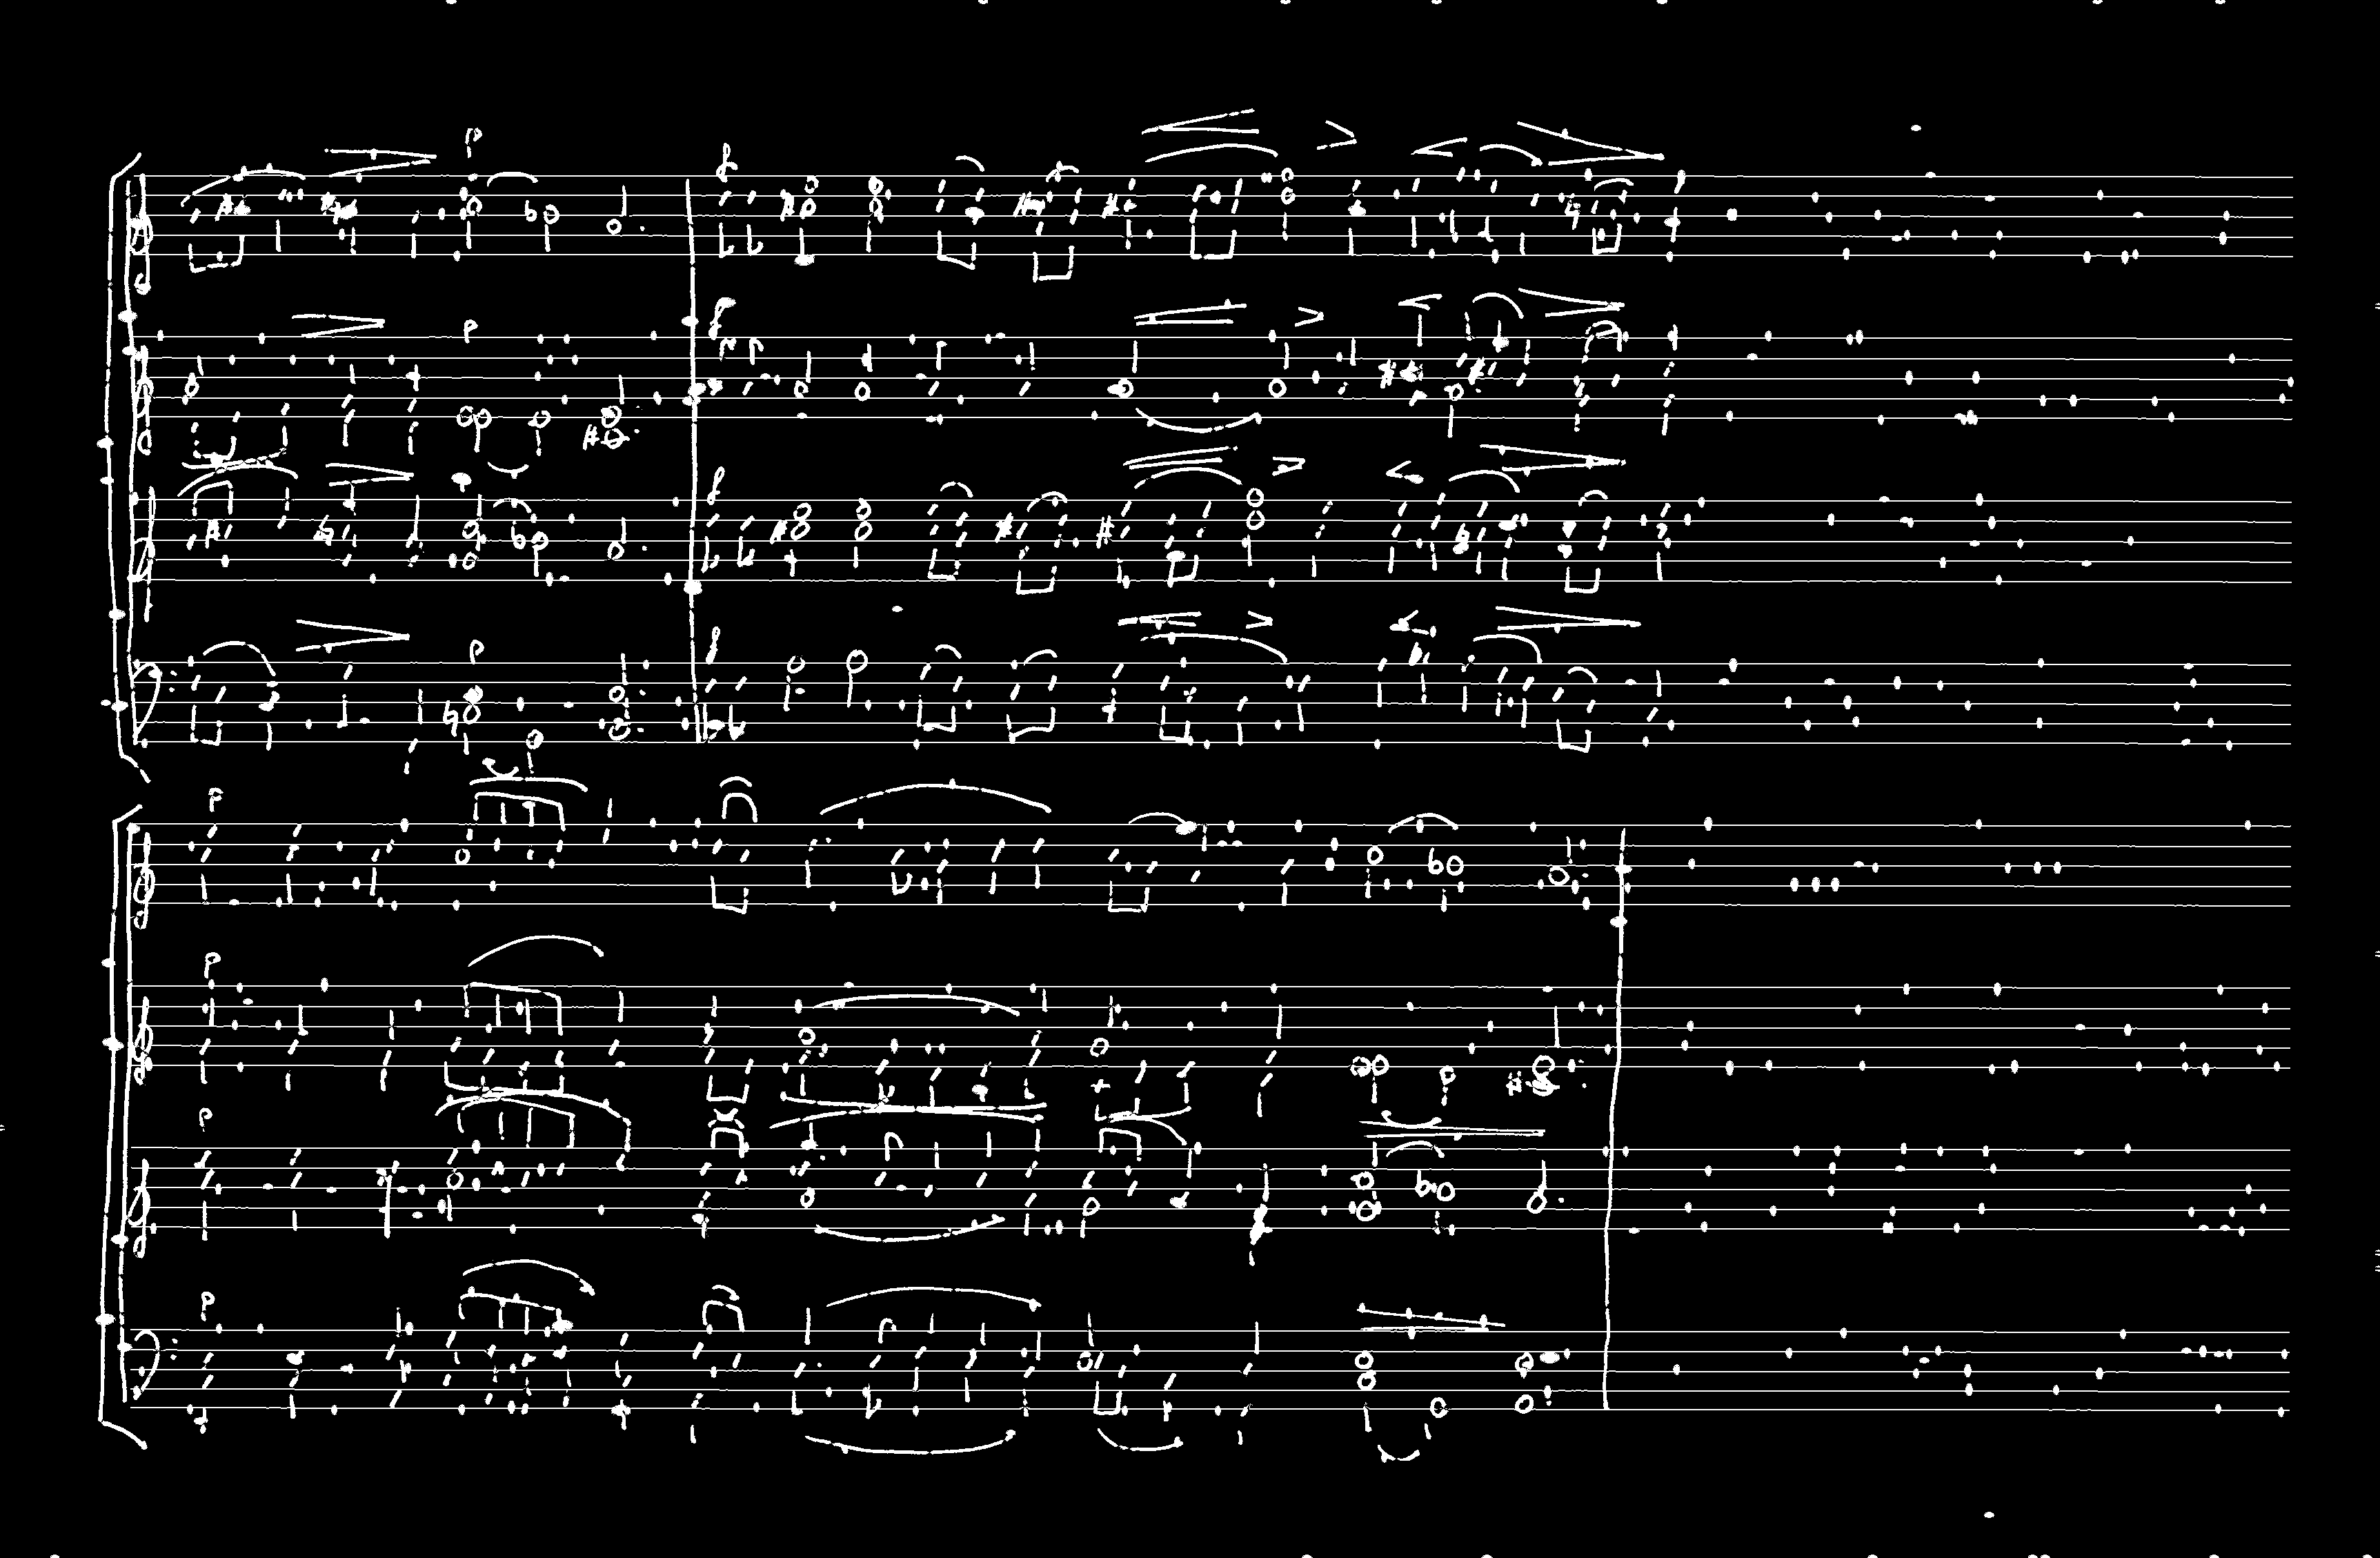 p
f
p
f
f
p
f
p
p
p
p